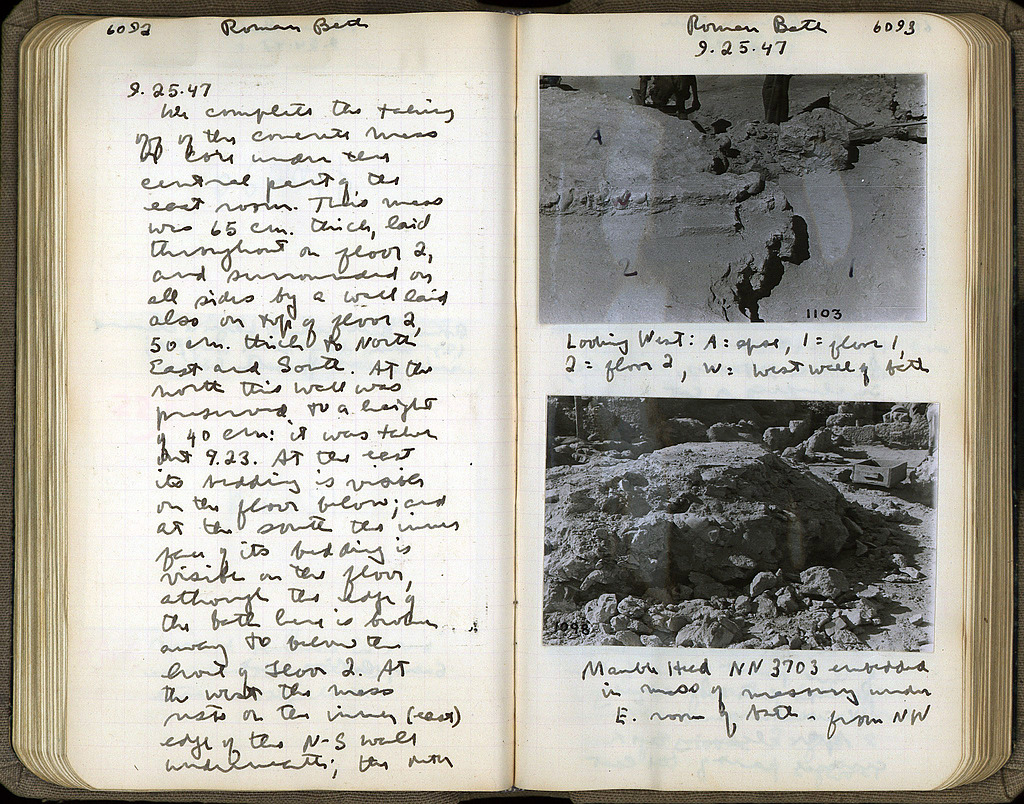 6092 Roman Bath
9.25.47
We complete the taking
off of the concrete mass
core under the
central part of the
east room. This mass
was 65 cm. thick, laid
throughout on floor 2,
and surrounded on
all sides by a wall laid
also on top of floor 2,
50 cm. thick to North
East and South. At the
north this wall was
preserved to a height
of 40 cm: it was taken
out 9.23. At the east
its bedding is visible
on the floor below; and
at the south the inner
face of its bedding is
visible on the floor,
although the edge of
the bath here is broken
away to below the
level of Floor 2. At
the west the mass
rests on the inner (east)
edge of the N-S wall
underneath; the outer
Roman Bath 6093
9.25.47
A
2
1
1103
Looking West: A = apse, 1 = floor 1,
2 = floor 2, W = West wall of bath
1098
Marble Head NN 3703 embedded
in mass of masonry under
E. room of bath - from NW